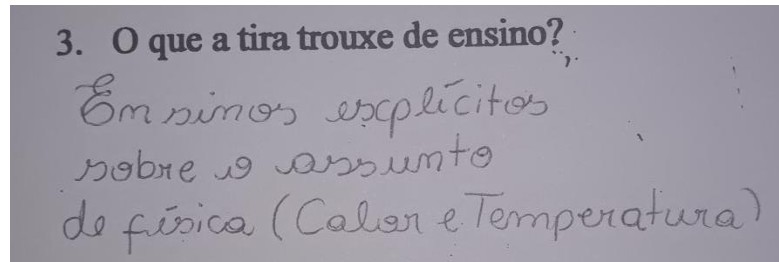 3. O que a tira trouxe de ensino?
Ensinos escplícitos
sobre o assunto
de física (Calor e Temperatura)